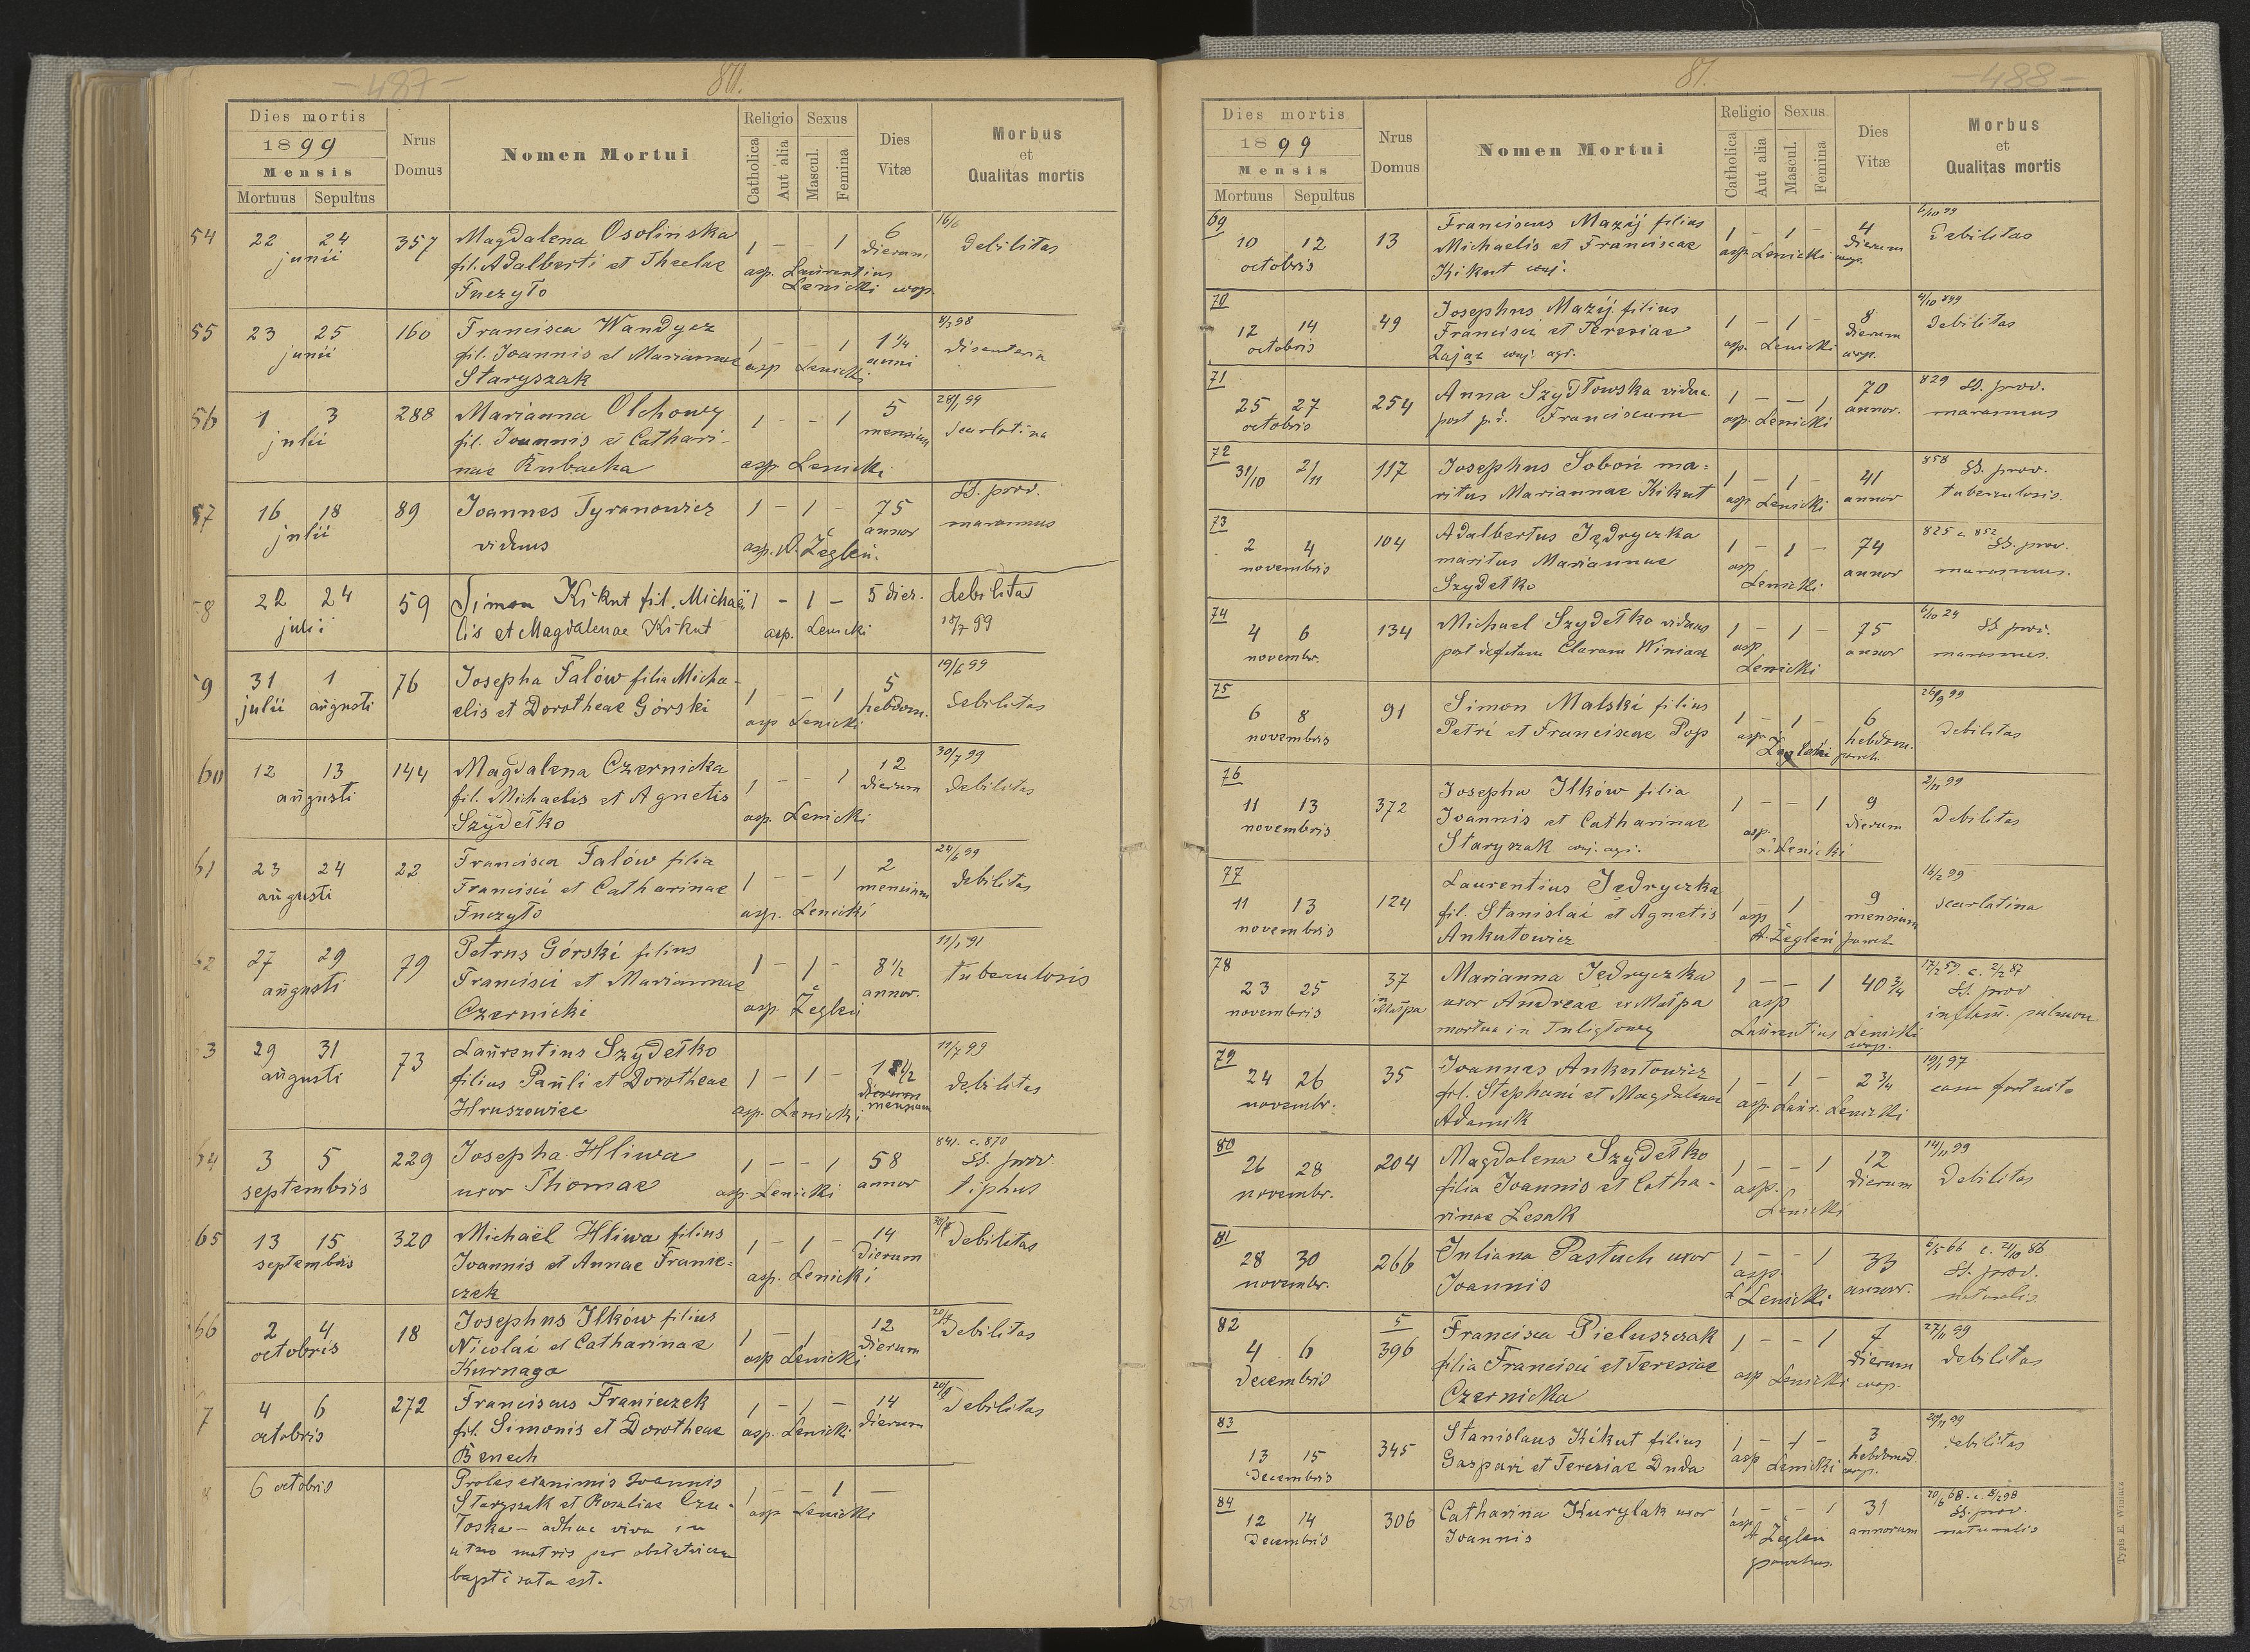 - 487 -
80.
Dies mortis
1899
Mensis
Mortuus Sepultus
Nrus Domus
Nomen Mortui
Religio
Catholica
Aut alia
Sexus
Mascul.
Femina
Dies Vitæ
Morbus
et
Qualitas mortis
54 22 24 junii 357 Magdalena Osolinska 1 - - 1 6 dierum 16/6 debilitas
fil. Adalberti et Theclae asp. Laurentius
Fuczyło Lenicki wsp.
55 23 25 junii 160 Francisca Wandycz 1 - - 1 1 1/4 anni 4/3 98 disenteria
fil. Joannis et Mariannae asp Lenicki
Staryszak
56 1 3 julii 288 Marianna Olchowy 1 - - 1 5 mensium 28/1 99 scarlatina
fil. Joannis et Cathari-
nae Rubacha asp. Lenicki
57 16 18 julii 89 Joannes Tyranowicz 1 - 1 - 75 annor SS. prov. marasmus
viduus asp. A. Żegleń.
58 22 24 julii 59 Simon Kikut fil. Michaë 1 - 1 - 5 dier. debilitas
lis et Magdalenae Kikut asp. Lenicki 18/7 99
59 31 julii 1 augusti 76 Josepha Fałów filia Micha- 1 - - 1 5 hebdom. 19/6 99 debilitas
elis et Dorotheae Górski asp Lenicki
60 12 13 augusti 144 Magdalena Czernicka 1 - - 1 12 dierum 30/7 99 debilitas
fil. Michaelis et Agnetis asp. Lenicki
Szydełko
61 23 24 augusti 22 Francisca Fałów filia 1 - - 1 2 mensium 24/6 99 debilitas
Francisci et Catharinae
Fuczyło asp. Lenicki
62 27 29 augusti 79 Petrus Górski filius 1 - 1 - 8 1/2 annor. 11/1 91 tuberculosis
Francisci et Mariannae
Czernicki asp. Żegleń
63 29 31 augusti 73 Laurentius Szydełko 1 - 1 - 1 1/2 dierum mensium 11/7 99 debilitas
filius Pauli et Dorotheae
Hruszowiec asp. Lenicki
64 3 5 septembris 229 Josepha Hliwa 1 - - 1 58 annor 841. c. 870 SS. prov. tiphus
uxor Thomae asp. Lenicki
65 13 15 septembris 320 Michaël Hliwa filius 1 - 1 - 14 dierum debilitas
Joannis et Annae Franie-
czek asp. Lenicki
66 2 4 octobris 18 Josephus Ilków filius 1 - 1 - 12 dierum debilitas
Nicolai et Catharinae
Kurnaga asp Lenicki
67 4 6 octobris 272 Franciscus Franieczek 1 - 1 - 14 dierum debilitas
fil. Simonis et Dorotheae asp. Lenicki
Benech
6 octobris Proles exanimis Joannis 1 - - 1 -
Staryszak et Rosaliae Czu- asp Lenicki
łoska - adhuc viva in
utero matris per obstetricem
baptisata est.
81.
- 488 -
Dies mortis
1899
Mensis
Mortuus Sepultus
Nrus Domus
Nomen Mortui
Religio
Catholica
Aut alia
Sexus
Mascul.
Femina
Dies Vitæ
Morbus
et
Qualitas mortis
69 10 12 octobris 13 Franciscus Mazij filius 1 - 1 - 4 dierum 6/10 99 debilitas
Michaelis et Franciscae asp. Lenicki wsp.
Kikut
70 12 14 octobris 49 Josephus Mazij filius 1 - 1 - 8 dierum 4/10 899 debilitas
Francisci et Teresiae asp. Lenicki wsp.
Zając
71 25 27 octobris 254 Anna Szydłowska vidua 1 - - 1 70 annor. 829 SS. prov. marasmus
post p.d. Franciscum asp. Lenicki
72 31/10 2/11 117 Josephus Soboń ma- 1 - 1 - 41 annor 858 SS. prov. tuberculosis
ritus Mariannae Kikut asp Lenicki
73 2 4 novembris 104 Adalbertus Jędryczka 1 - 1 - 74 annor 825 c. 852 SS. prov. marasmus.
maritus Mariannae asp Lenicki
Szydełko
74 4 6 novembr. 134 Michael Szydełko viduus 1 - 1 - 75 annor 6/10 24 SS. prov. marasmus.
post defctam Claram Winiarz asp Lenicki
75 6 8 novembris 91 Simon Malski filius 1 - 1 - 6 hebdom. 26/9 99 debilitas
Petri et Franciscae Pop asp. Żegleń paroch.
76 11 13 novembris 372 Josepha Ilków filia 1 - - 1 9 dierum 2/11 99 debilitas
Joannis et Catharinae asp.
Staryszak L. Lenicki
77 11 13 novembris 124 Laurentius Jędryczka 1 - 1 - 9 mensium 16/2 99 scarlatina
fil. Stanislai et Agnetis asp
Ankutowicz A. Żegleń paroch
78 23 25 novembris 37 in Małpa Marianna Jędryczka 1 - - 1 40 3/4 17/2 59. c. 2/2 87 SS. prov
uxor Andreae ex Małpa asp inflam. pulmon
mortua in Tuligłowy Laurentius Lenicki wsp.
79 24 26 novembr. 35 Joannes Ankutowicz 1 - 1 - 2 3/4 19/1 97 casu fortuito
fil. Stephani et Magdalenae asp. Laur. Lenicki
Adamik
80 26 28 novembr. 204 Magdalena Szydełko 1 - - 1 12 dierum 14/11 99 debilitas
filia Joannis et Catha- asp.
rinae Lesak Lenicki
81 28 30 novembr. 266 Juliana Pastuch uxor 1 - - 1 33 annor. 6/5 66 c. 21/10 86 SS. prov. naturalis
Joannis asp. L Lenicki
82 4 6 decembris 5 396 Francisca Pieluszczak 1 - - 1 7 dierum 27/11 99 debilitas
filia Francisci et Teresiae asp Lenicki wsp.
Czernicka
83 13 15 decembris 345 Stanislaus Kikut filius 1 - 1 - 3 hebdomad. 20/11 99 debilitas
Gaspari et Teresiae Duda asp Lenicki wsp.
84 12 14 decembris 306 Catharina Kurylak uxor 1 - - 1 31 annorum 20/6 68. c. 8/2 98 SS. prov. naturalis
Joannis asp A Żegleń
parochus.
Typis E. Winiarz
251